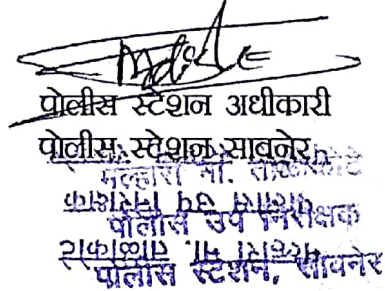 पोलीस स्टेशन अधीकारी
पोलीस स्टेशन सावनेर
मल्हारी मा. ताळीकोटे
पोलीस उप निरीक्षक
पोलीस स्टेशन, सावनेर